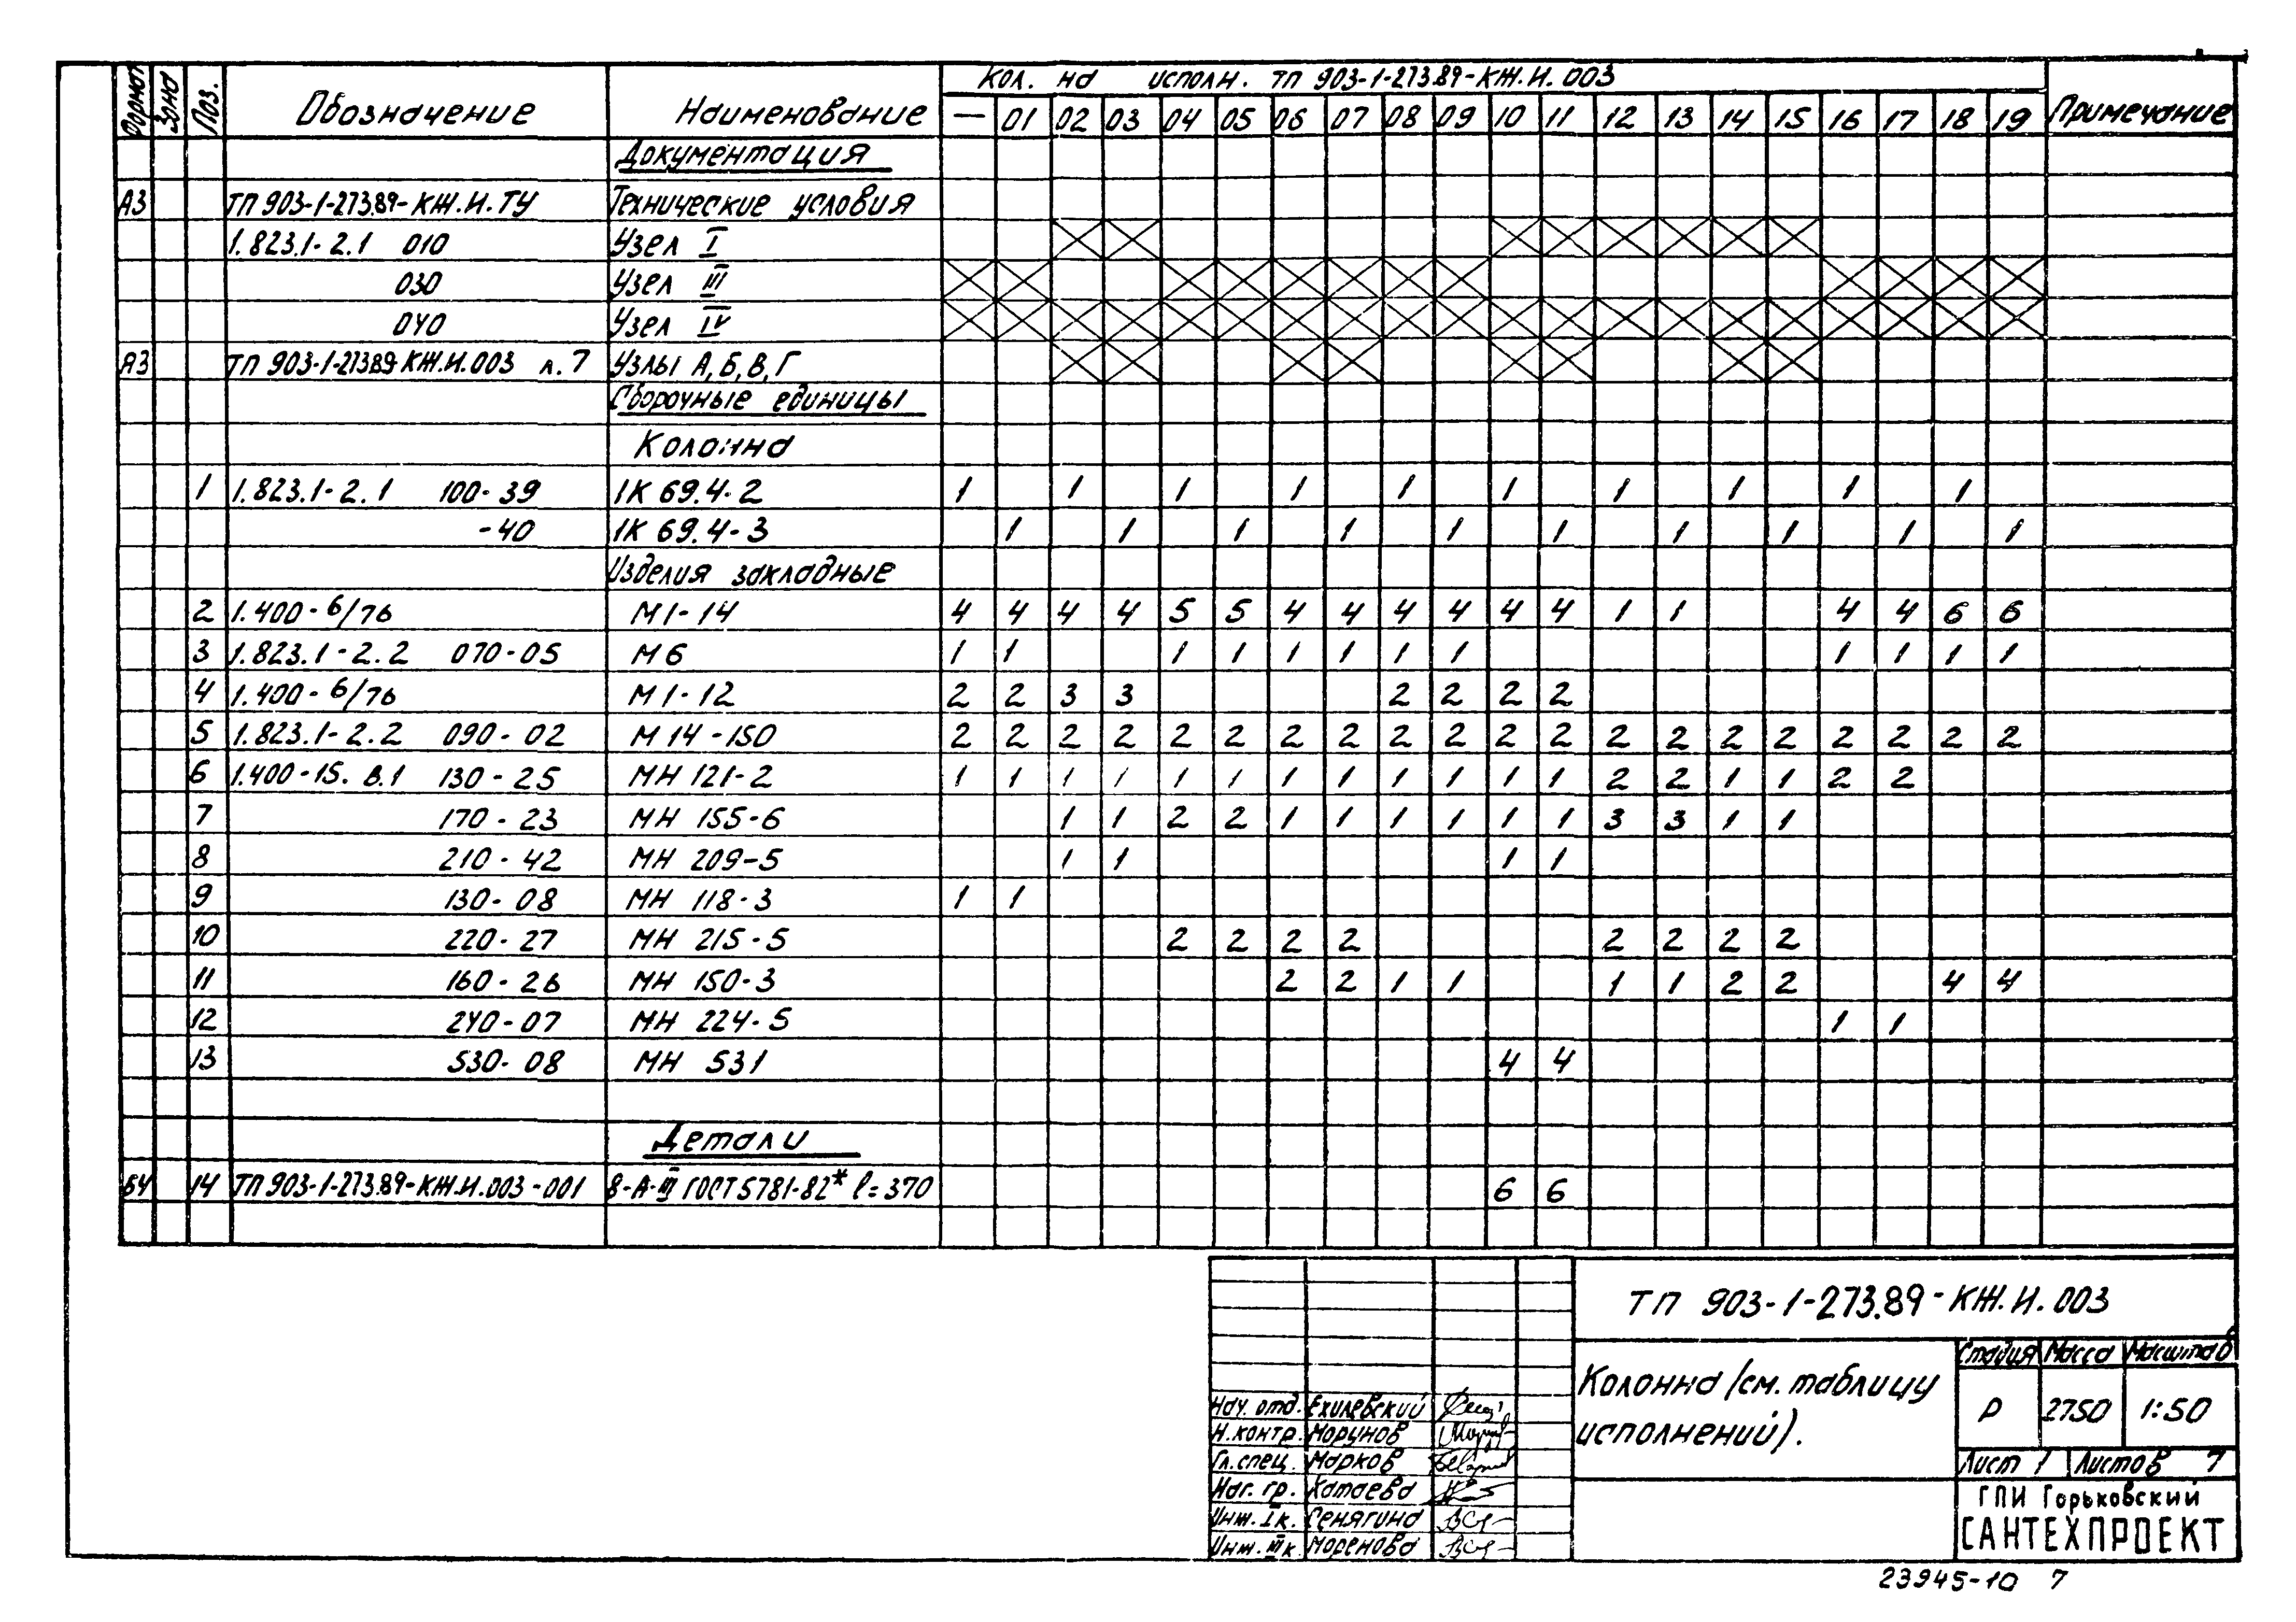 Формат Зона Поз. Обозначение Наименование Кол. на исполн. ТП 903-1-273.89-КЖ.И.003 Примечание
— 01 02 03 04 05 06 07 08 09 10 11 12 13 14 15 16 17 18 19
Документация
А3 ТП 903-1-273.89-КЖ.И.ТУ Технические условия
1.823.1-2.1 010 Узел I
030 Узел III
040 Узел IV
А3 ТП 903-1-273.89-КЖ.И.003 л.7 Узлы А,Б,В,Г
Сборочные единицы
Колонна
1 1.823.1-2.1 100-39 1К 69.4-2 1 1 1 1 1 1 1 1 1 1
-40 1К 69.4-3 1 1 1 1 1 1 1 1 1 1
Изделия закладные
2 1.400-6/76 М1-14 4 4 4 4 5 5 4 4 4 4 4 4 1 1 4 4 6 6
3 1.823.1-2.2 070-05 М6 1 1 1 1 1 1 1 1 1 1 1 1
4 1.400-6/76 М1-12 2 2 3 3 2 2 2 2
5 1.823.1-2.2 090-02 М14-150 2 2 2 2 2 2 2 2 2 2 2 2 2 2 2 2 2 2 2 2
6 1.400-15. В.1 130-25 МН 121-2 1 1 1 1 1 1 1 1 1 1 1 1 2 2 1 1 2 2
7 170-23 МН 155-6 1 1 2 2 1 1 1 1 1 1 3 3 1 1
8 210-42 МН 209-5 1 1 1 1
9 130-08 МН 118-3 1 1
10 220-27 МН 215-5 2 2 2 2 2 2 2 2
11 160-26 МН 150-3 2 2 1 1 1 1 2 2 4 4
12 240-07 МН 224-5 1 1
13 530-08 МН 531 4 4
Детали
БЧ 14 ТП 903-1-273.89-КЖ.И.003-001 8-А-III ГОСТ 5781-82* l=370 6 6
ТП 903-1-273.89-КЖ.И.003
Колонна (см. таблицу
исполнений).
Стадия Масса Масштаб
Р 2750 1:50
Лист 1 Листов 7
ГПИ Горьковский
САНТЕХПРОЕКТ
Нач. отд. Ехилевский
Н.контр. Морунов
Гл.спец. Марков
Наг. гр. Катаева
Инж. I к. Сенягина
Инж. III к. Моренова
23945-10 7